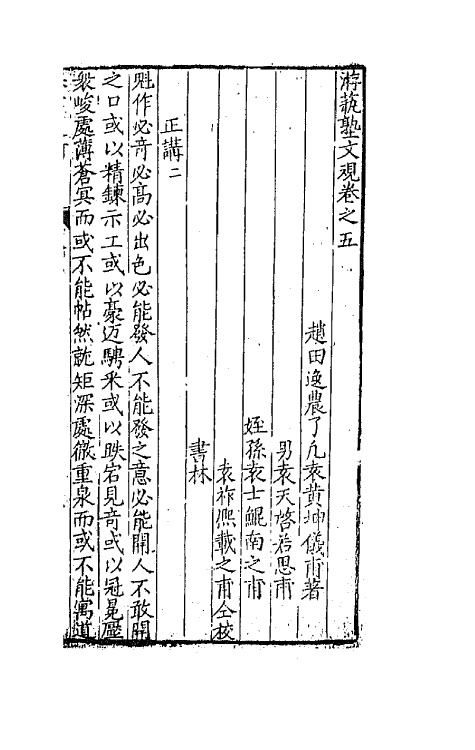 游藝塾文規卷之五
趙田逸農了凡袁黃坤儀甫著
男袁天啓若思甫
姪孫袁士鯤南之甫
袁祚熙載之甫仝校
書林
正講二
魁作必竒必髙必出色必能發人不能發之意必能開人不敢開
之口或以精鍊示工或以豪迈騁釆或以跌宕見竒或以冠冕壓
衆峻處薄蒼冥而或不能帖然就矩深處徹重泉而或不能寓道